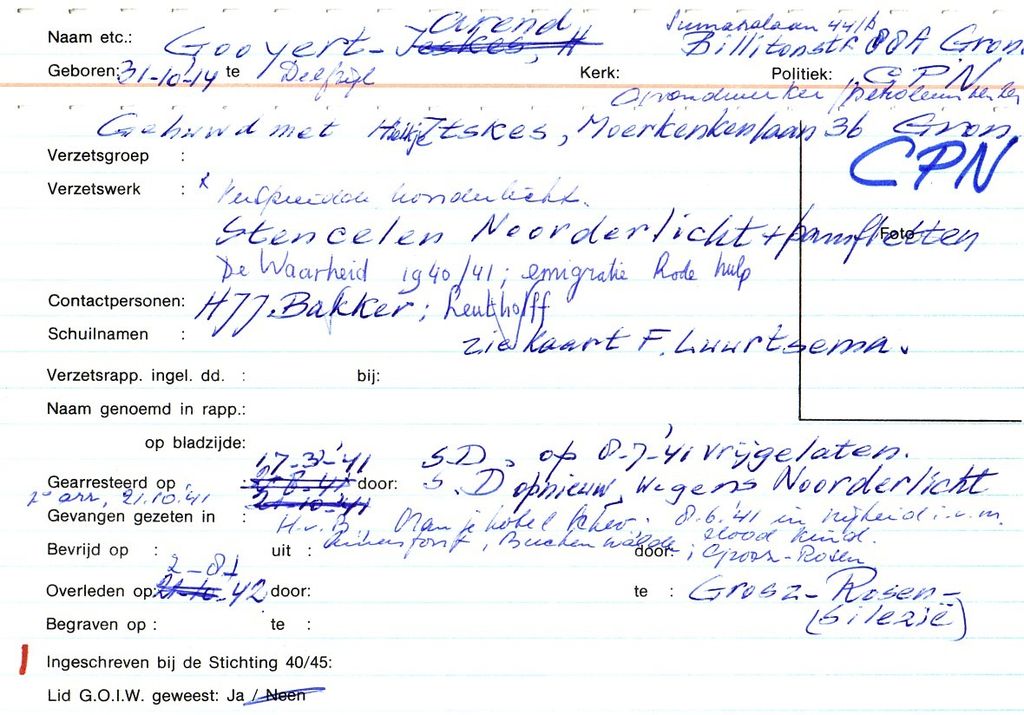 arend Sumatralaan 44/b
Naam etc.: Gooyert-Jeskes, H Billitonstr. 88A Gron.
Geboren: 31-10-14 te Delfzijl Kerk: Politiek: CPN
Grondwerker /
Gehuwd met Itskes, Moerkerkenlaan 36 Gron.
Verzetsgroep : CPN
Verzetswerk : x Verspreidde Noorderlicht.
Stencelen Noorderlicht + pamfletten Foto
De Waarheid 1940/41; emigratie Rode hulp
Contactpersonen: H JJ. Bakker; Leuthölff
Schuilnamen : zie kaart F. Luurtsema.
Verzetsrapp. ingel. dd. : bij:
Naam genoemd in rapp.:
op bladzijde:
17-3-'41 S.D. op 8-7-'41 vrijgelaten.
Gearresteerd op : door: S.D opnieuw, wegens Noorderlicht
2e arr. 21.10.'41 21-10-'41
Gevangen gezeten in : H.v.B, Oranjehotel Schev. 8.6.'41 in vrijheid i.v.m. dood kind.
Bevrijd op : uit : Amersfoort, Buchenwalde door: ; Grosz-Rosen
2-8
Overleden op: 21-10-42 door: te : Grosz-Rosen-
Begraven op : te : (Silezië)
Ingeschreven bij de Stichting 40/45:
Lid G.O.I.W. geweest: Ja / Neen